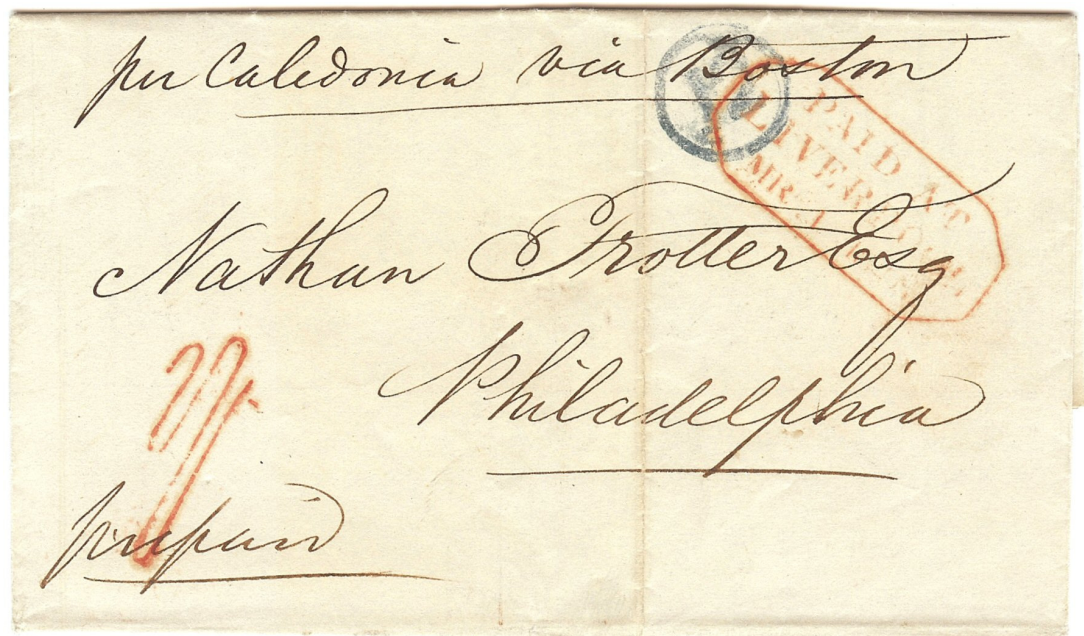 per Caledonia via Boston
PAID AT
LIVERPOOL
Nathan Trotter Esq
Philadelphia
prepaid